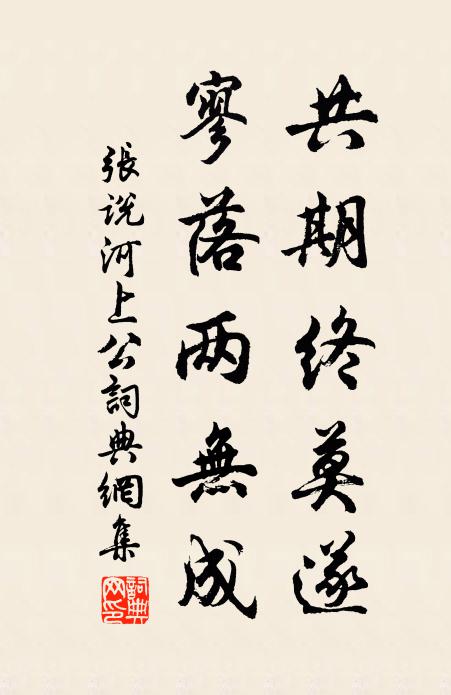 共期终莫遂
寥落两無成
張说河上公詞典網集
詞典网印